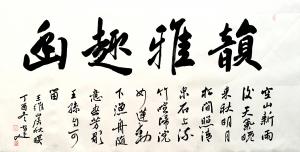 韻雅趣幽
空山新雨
後天氣晚
來秋明月
松間照清
泉石上流
竹喧歸浣
女蓮動
下漁舟隨
意春芳歇
王孫自可
留
王維山居秋暝
丁酉冬